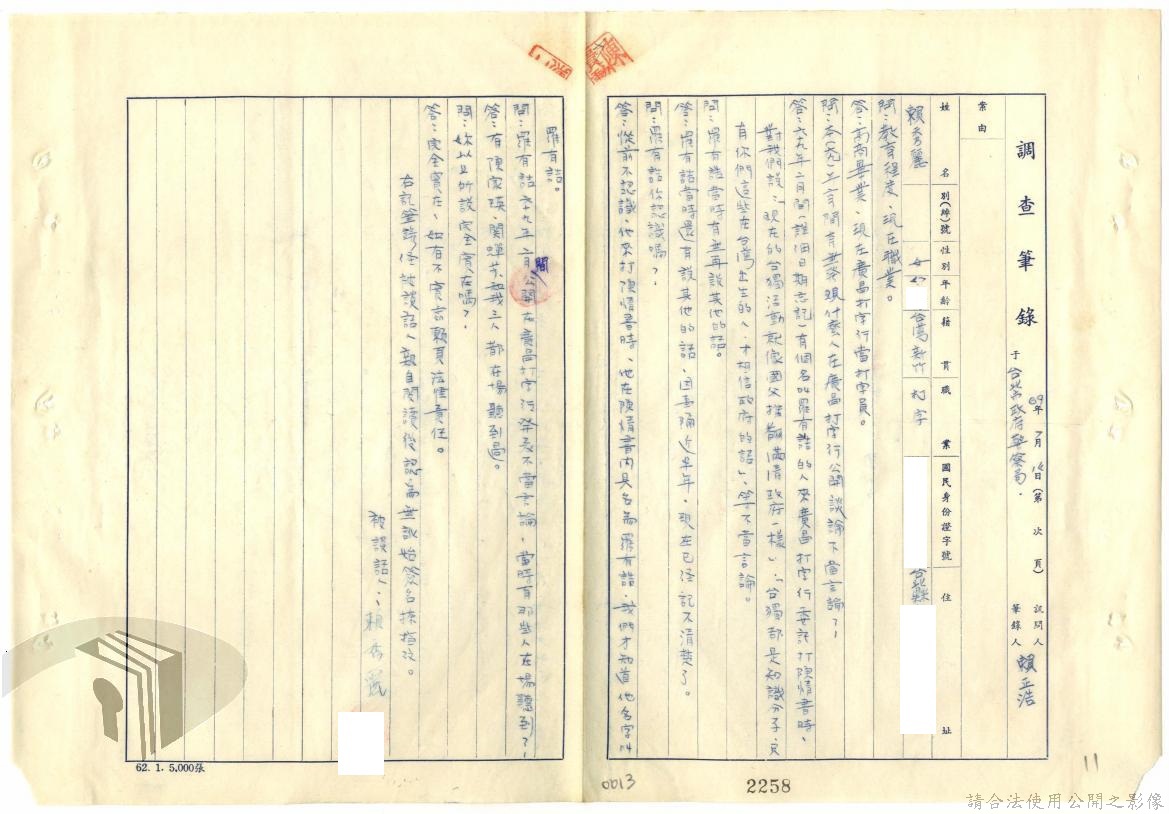 調查筆錄
69年7月16日(第 次 頁)
于台北市政府警察局.
訊問人
筆錄人
賴正浩
案由
姓名 別(綽)號 性別 年齡 籍貫 職業 國民身份證字號 住址
賴秀麗 女 台灣新竹 打字 台北縣
問:教育程度、現在職業。
答:高商畢業、現在廣昌打字行當打字員。
問:本(六九)年二月間有無發現什麼人在廣昌打字行公開談論不當言論?
答:六十九年二月間(詳細日期忘記)有個名叫羅有誥的人來廣昌打字行委託打陳情書時、
對我們說:「現在的台獨活動就像國父推翻滿清政府一樣」、「台獨都是知識分子、只
有你們這些在台灣出生的人、才相信政府的話」、等不當言論。
問:羅有誥當時有無再說其他的話。
答:羅有誥當時還有說其他的話、因事隔近半年、現在已經記不清楚了。
問:羅有誥你認識嗎?
答:從前不認識、他來打陳情書時、他在陳情書內具名為羅有誥、我們才知道他名字叫
羅有誥。
問:羅有誥六十九年二月間公開在廣昌打字行發表不當言論、當時有那些人在場聽到?
答:有陳家瑛、關蟬芬和我三人都在場聽到過。
問:妳以上所說完全實在嗎?
答:完全實在、如有不實言願負法律責任。
右記筆錄經被談話人親自閱讀後認為無訛始簽名捺指紋。
被談話人:賴秀麗
62. 1. 5,000張
0013
2258
11
請合法使用公開之影像